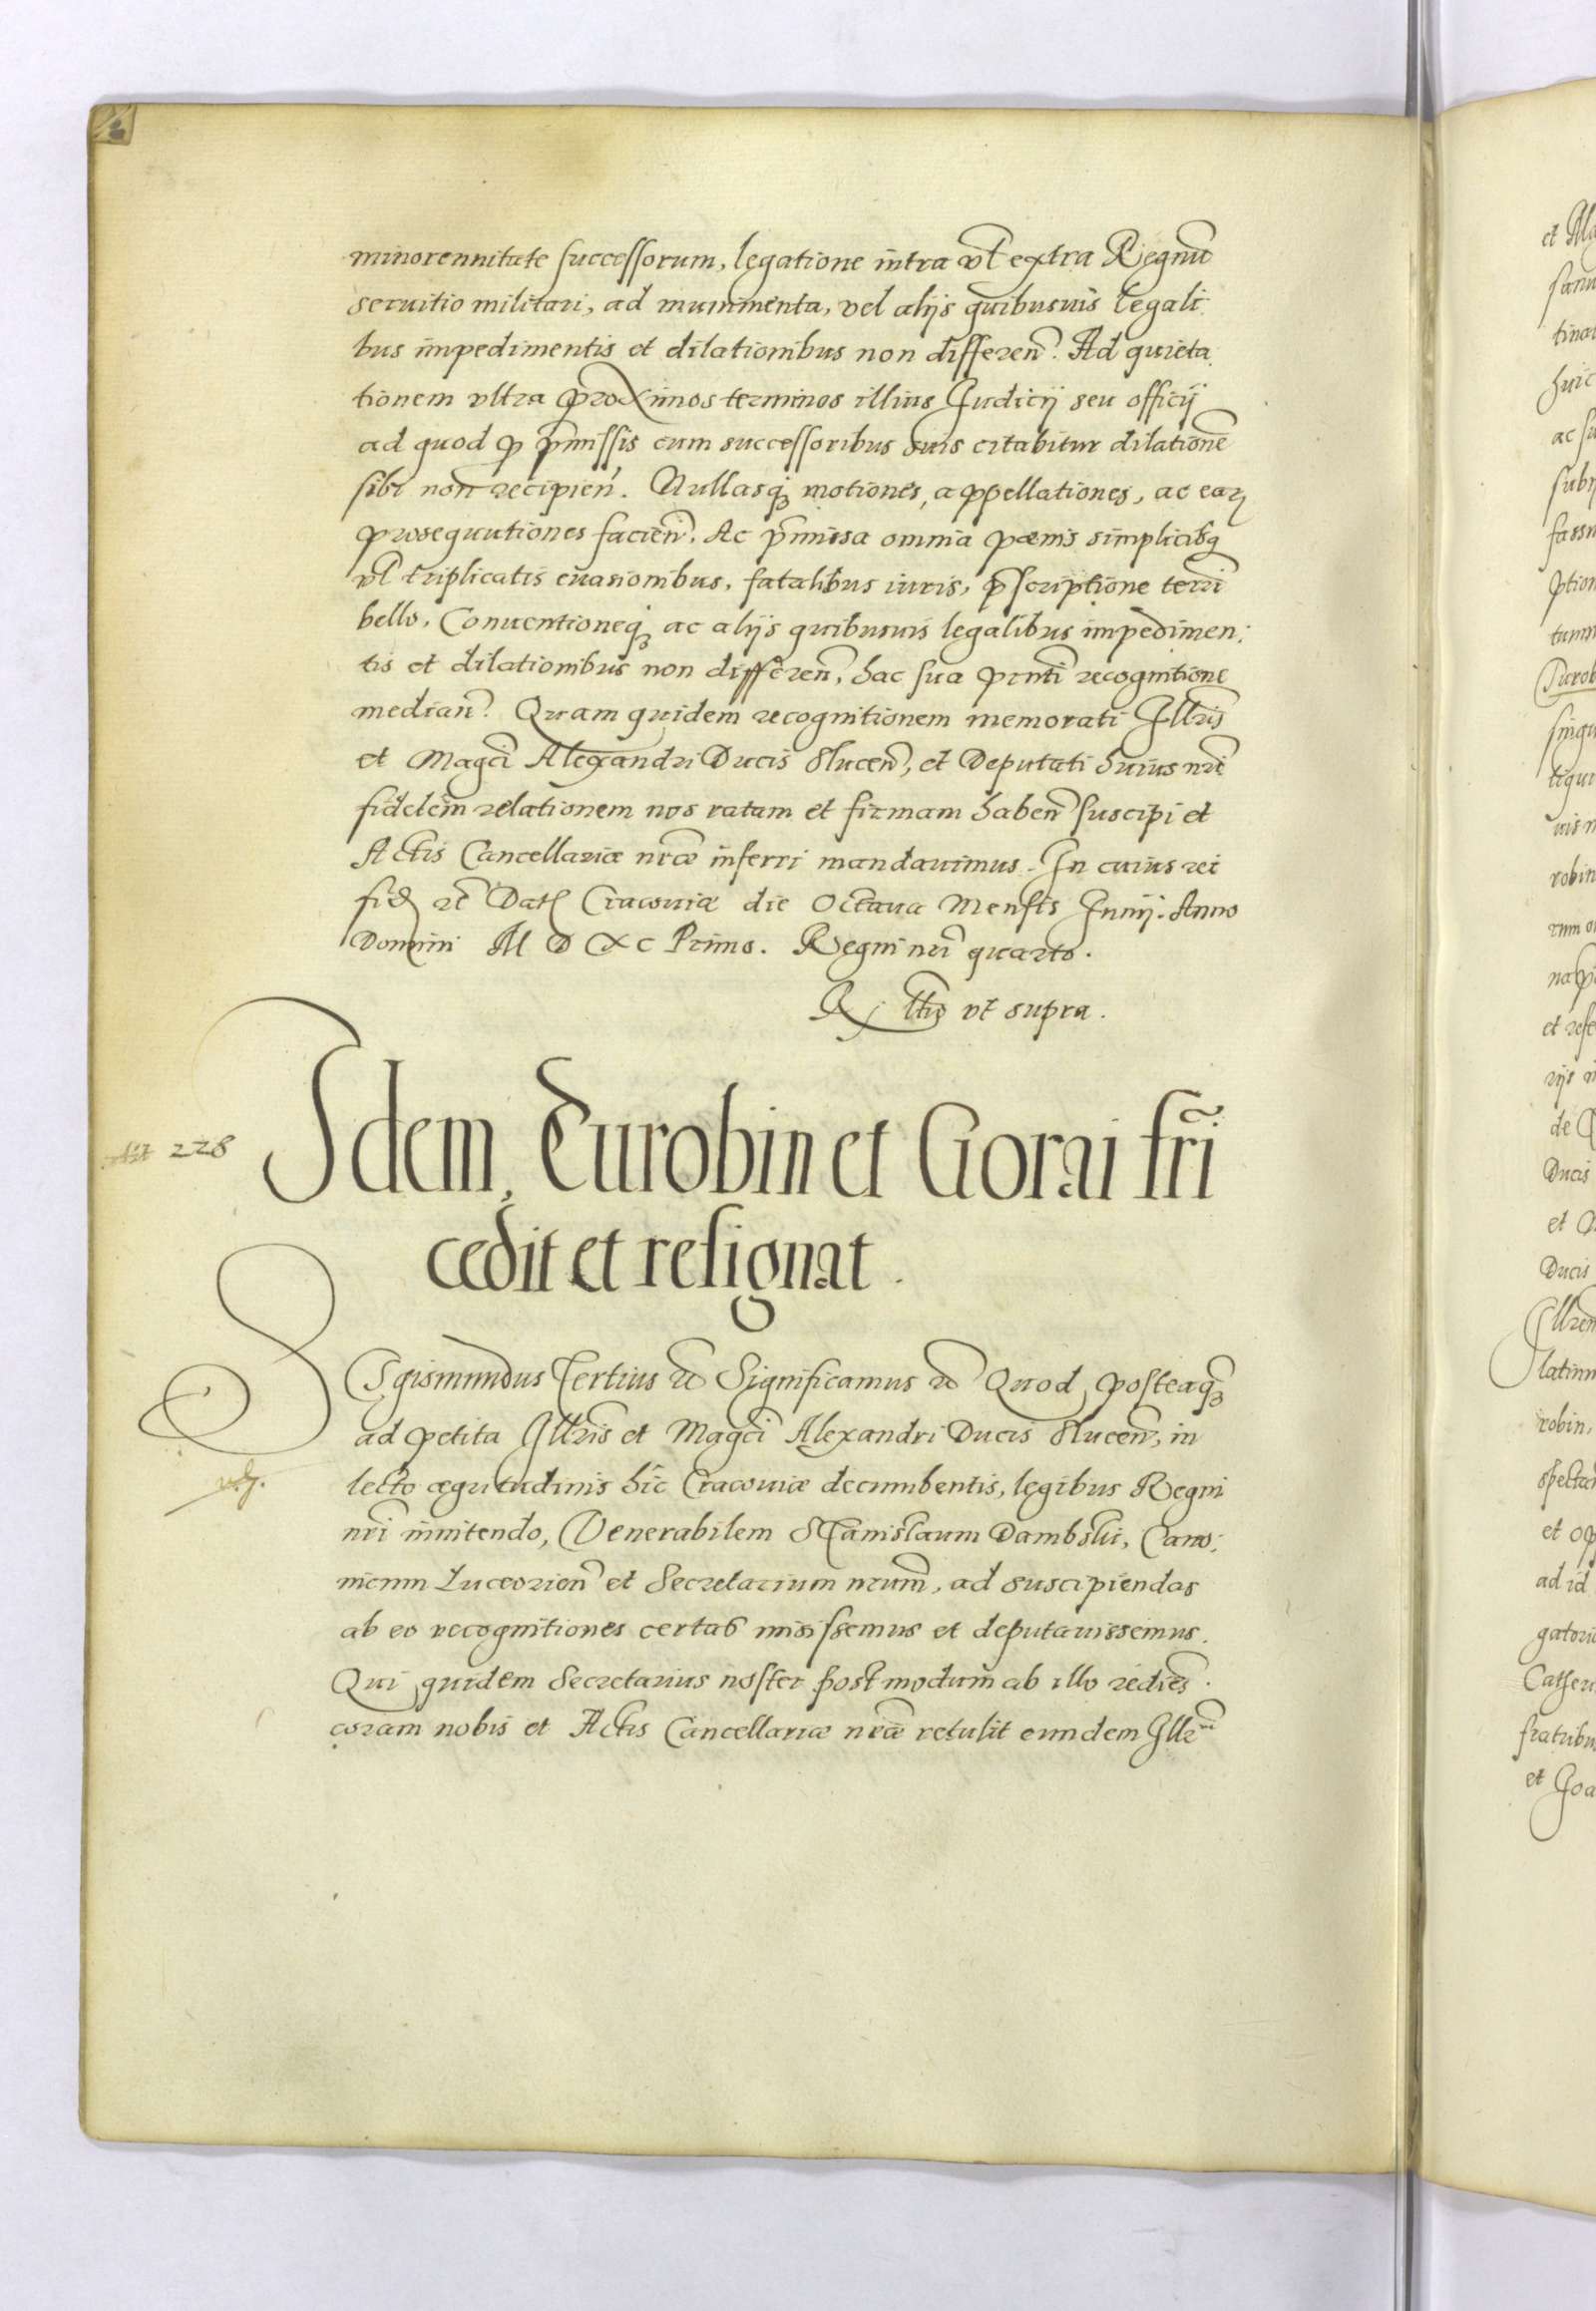 minorennitate successorum, legatione intra vl̃ extra Regnũ
seruitio militari, ad munimenta, vel alijs quibusuis legali
bus impedimentis et dilationibus non differeñ. Ad quieta
tionem vltra proximos terminos illius Judicij seu officij
ad quod p p̃missis cum successoribus suis citabitur dilationẽ
sibi non recipień. Nullasq̃ motiones, appellationes, ac earz
prosequutiones facień. Ac p̃missa omnia pœnis simplicibq
vl̃ triplicatis euasionibus, fatalibus iuris, p̃scriptione terri
bello, Conuentioneq̃ ac alijs quibusuis legalibus impedimen:
tis et dilationibus non differeñ, hac sua pñti recognitione
median̄. Quam quidem recognitionem memorati Illris̃
et Magc̃i Alexandri Ducis Slucen̄, et Deputati huius nr̃i
fidelem relationem nos ratam et firmam haben̄ suscipi et
Actis Cancellariæ nr̃æ inferri mandauimus. In cuius rei
fidz rc̃ Datz Cracouiæ die Octaua Mensis Junij. Anno
Domini M D XC Primo. Regni nr̃i quarto.
R ltio vt supra.
Idem, Turobin et Gorai fr̃i
cedit et resignat.
228
Sigismundus Tertius rc̃ Significamus rc̃ Quod, posteaq̃
ad petita Illris̃ et Magc̃i Alexandri Ducis Slucen̄, in
lecto ægritudinis hîc Cracouiæ decumbentis, legibus Regni
nr̃i innitendo, Venerabilem Stanislaum Dambski, Cano:
nicum Luceorien̄ et Secretarium nr̃um, ad suscipiendas
ab eo recognitiones certas misissemus et deputauissemus.
Qui quidem Secretarius noster postmodum ab illo rediẽs
coram nobis et Actis Cancellariæ nr̃æ retulit eundem Illr̃